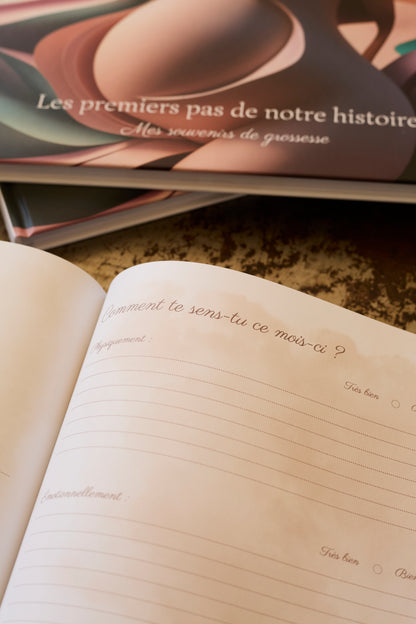 Les premiers pas de notre histoire
Mes souvenirs de grossesse
Comment te sens-tu ce mois-ci ?
Physiquement :
Très bien
Émotionnellement :
Très bien
Bien